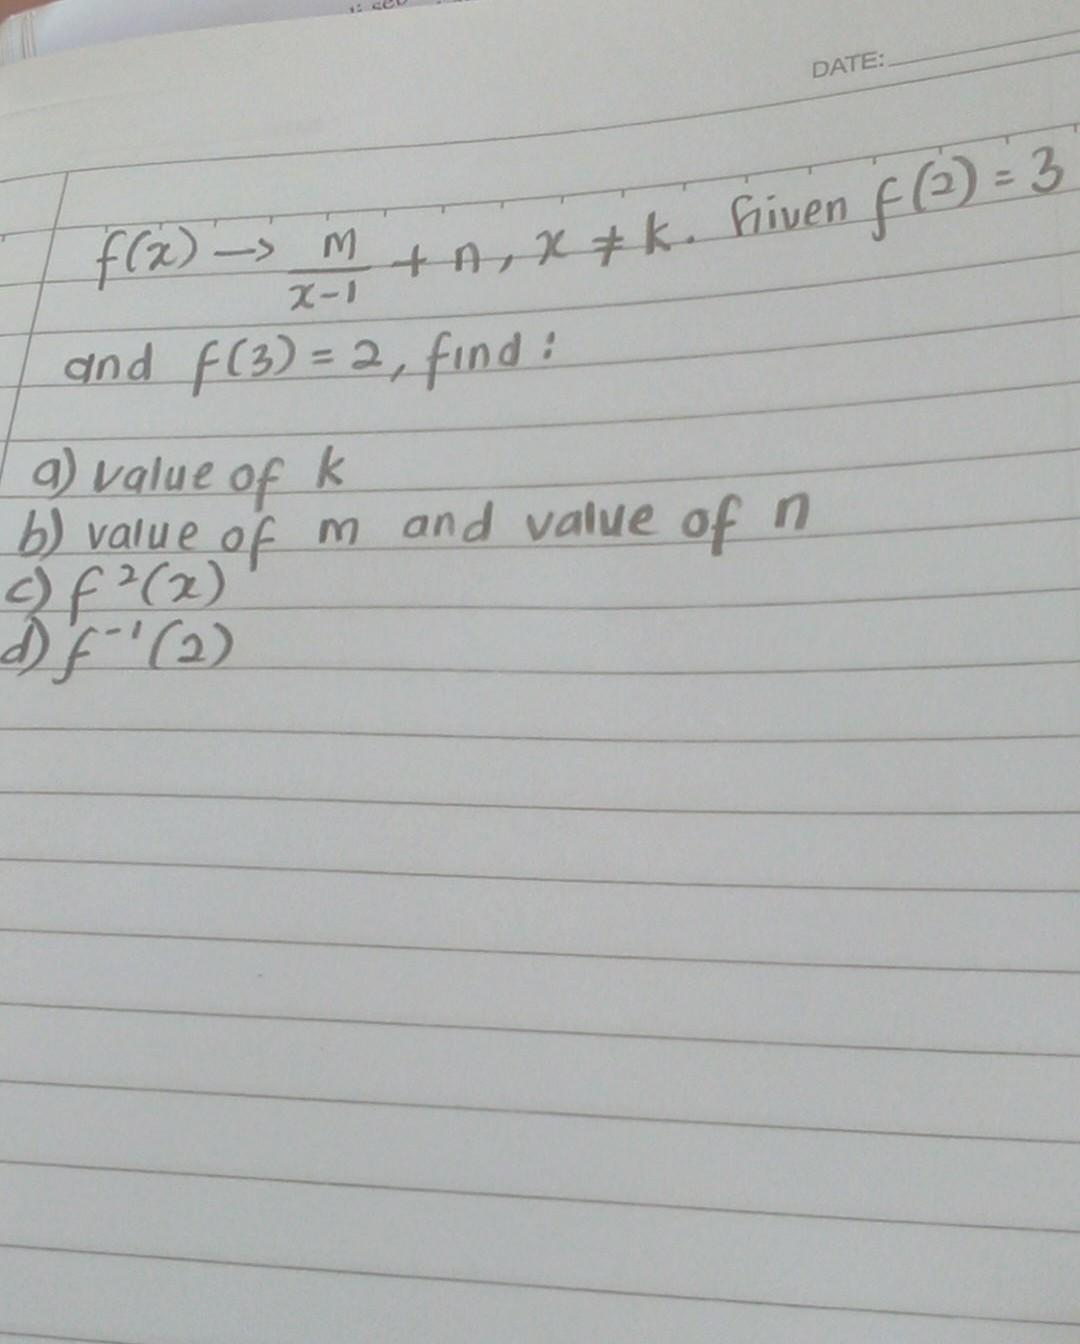 DATE:
f(x) → m/(x-1) + n, x ≠ k. Given f(2) = 3
and f(3) = 2, find :
a) value of k
b) value of m and value of n
c) f²(x)
d) f⁻¹(2)